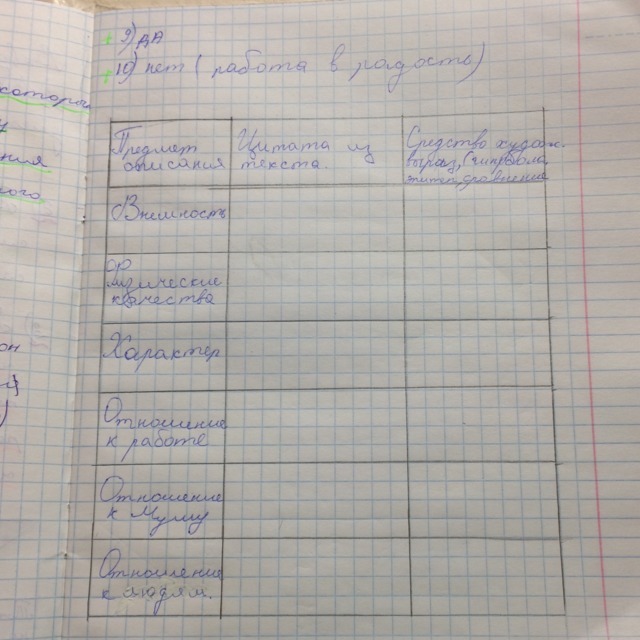 которая
у
ния
ного
он
9) да
10) нет ( работа в радость)
Предмет описания
Цитата из текста.
Средство худож. выраз. (гипербола эпитет, сравнение
Внешность
Физические качества
Характер
Отношение к работе
Отношение к Муму
Отношение к людям.